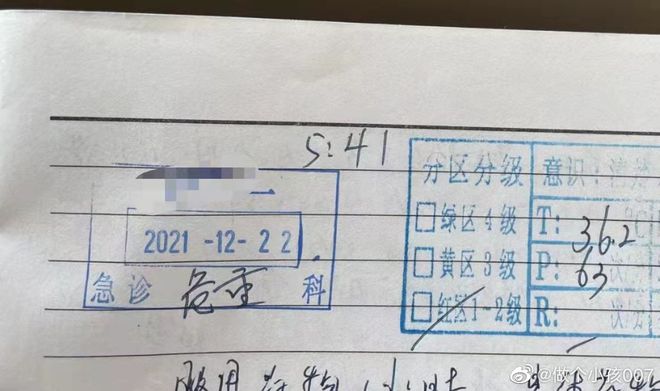 5:41
分区分级 意识:清楚
2021-12-22.
□绿区4级 T: 36.2 ℃
急诊 危重 科
□黄区3级 P: 63 次/分
□红区1-2级 R: 次/分
服用
@做个小孩007